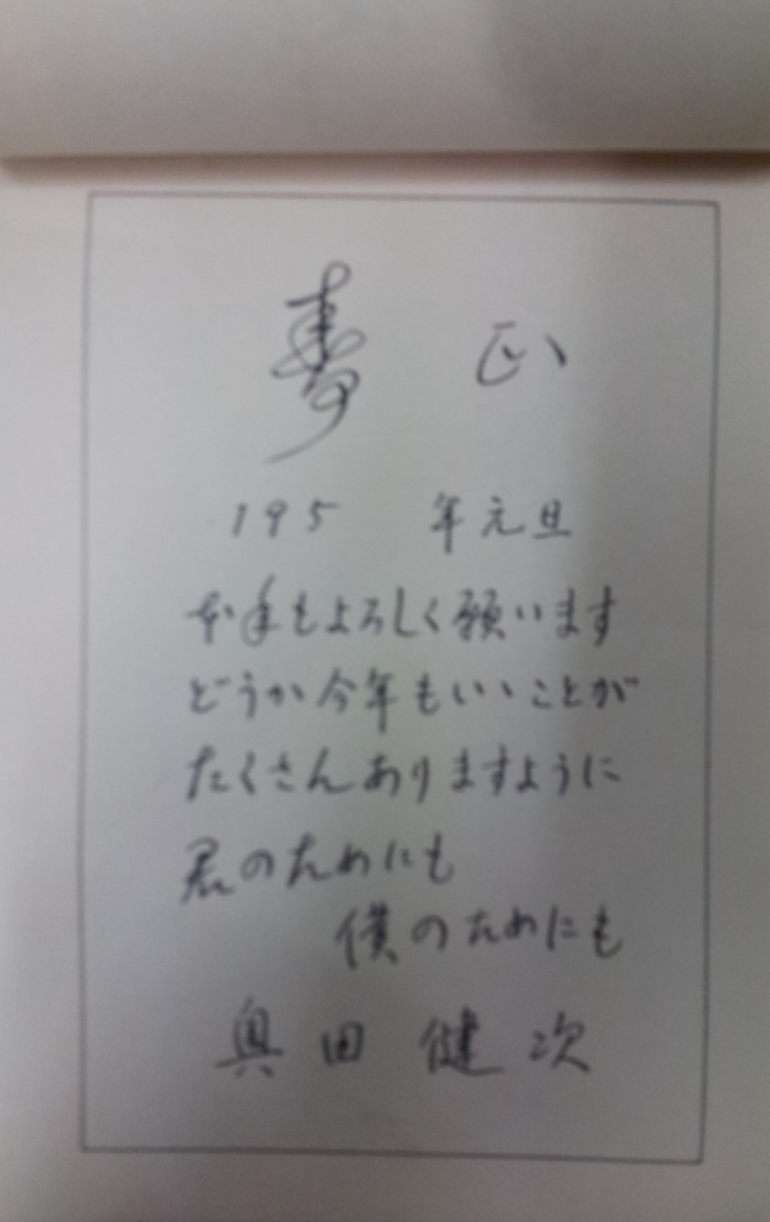 寿
195 年元旦
本年もよろしく願います
どうか今年もいゝことが
たくさんありますように
君のためにも
僕のためにも
奥田健次